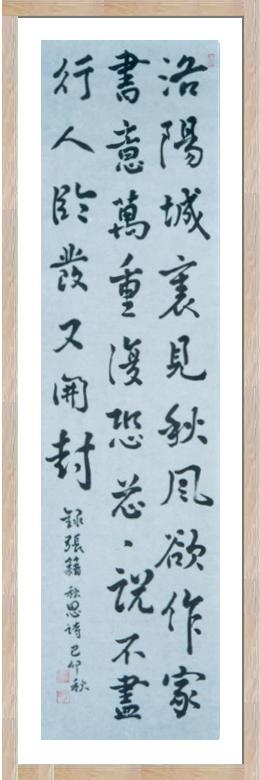 洛陽城裏見秋風欲作家
書意萬重復恐怱丶說不盡
行人臨發又開封
錄張籍秋思詩己卯秋